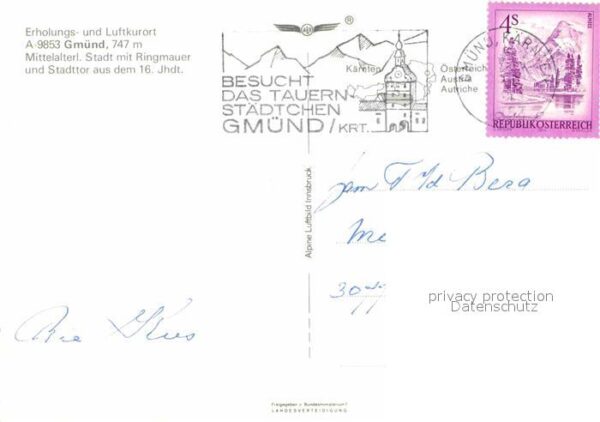 Erholungs- und Luftkurort
A-9853 Gmünd, 747 m
Mittelalterl. Stadt mit Ringmauer
und Stadttor aus dem 16. Jhdt.
®
BESUCHT
DAS TAUERN-
STÄDTCHEN
GMÜND/KRT.
Kärnten
Österreich
Austria
Autriche
4S
ALMSEE
REPUBLIK ÖSTERREICH
Alpine Luftbild Innsbruck
fam T v/d Berg
Me
30
privacy protection
Datenschutz
Freigegeben v. Bundesministerium f.
LANDESVERTEIDIGUNG